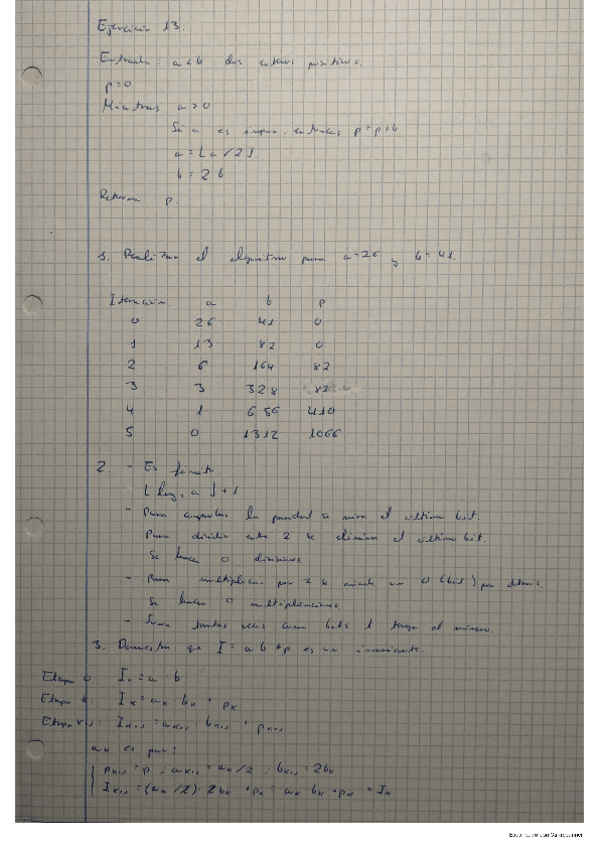 Ejercicio 13.
Entrada: a<b dos enteros positivos.
p=0
Mientras a>0
Si a es impar entonces p=p+b
a=⌊a/2⌋.
b=2·b
Retornar p.
1. Realizar el algoritmo para a=26 y b=41.
Iteración a b p
0 26 41 0
1 13 82 0
2 6 164 82
3 3 328 82
4 1 656 410
5 0 1312 1066
2. - Es finito.
⌊log₂ a⌋+1
- Para comprobar la paridad se mira el último bit.
Para dividir entre 2 se elimina el último bit.
Se hacen 0 divisiones
- Para multiplicar por 2 se añade un 0 (bit) por detrás
Se hacen 0 multiplicaciones
- Suma tantas veces como bits 1 tenga el número.
3. Demuestra que I = a b + p es un invariante.
Etapa 0: I₀=a·b
Etapa k: Iₖ=aₖ·bₖ + pₖ
Etapa k+1: Iₖ₊₁=aₖ₊₁ bₖ₊₁ + pₖ₊₁
aₖ es par:
pₖ₊₁=p, aₖ₊₁=aₖ/2, bₖ₊₁=2bₖ
Iₖ₊₁=(aₖ/2)·2bₖ+pₖ=aₖ bₖ+pₖ=Iₖ